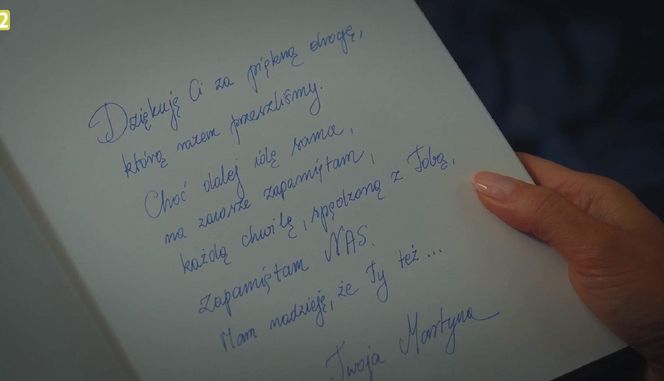 2
Dziękuję Ci za piękną drogę,
którą razem przeszliśmy.
Choć dalej idę sama,
na zawsze zapamiętam,
każdą chwilę, spędzoną z Tobą,
zapamiętam NAS.
Mam nadzieję, że Ty też...
Twoja Martyna